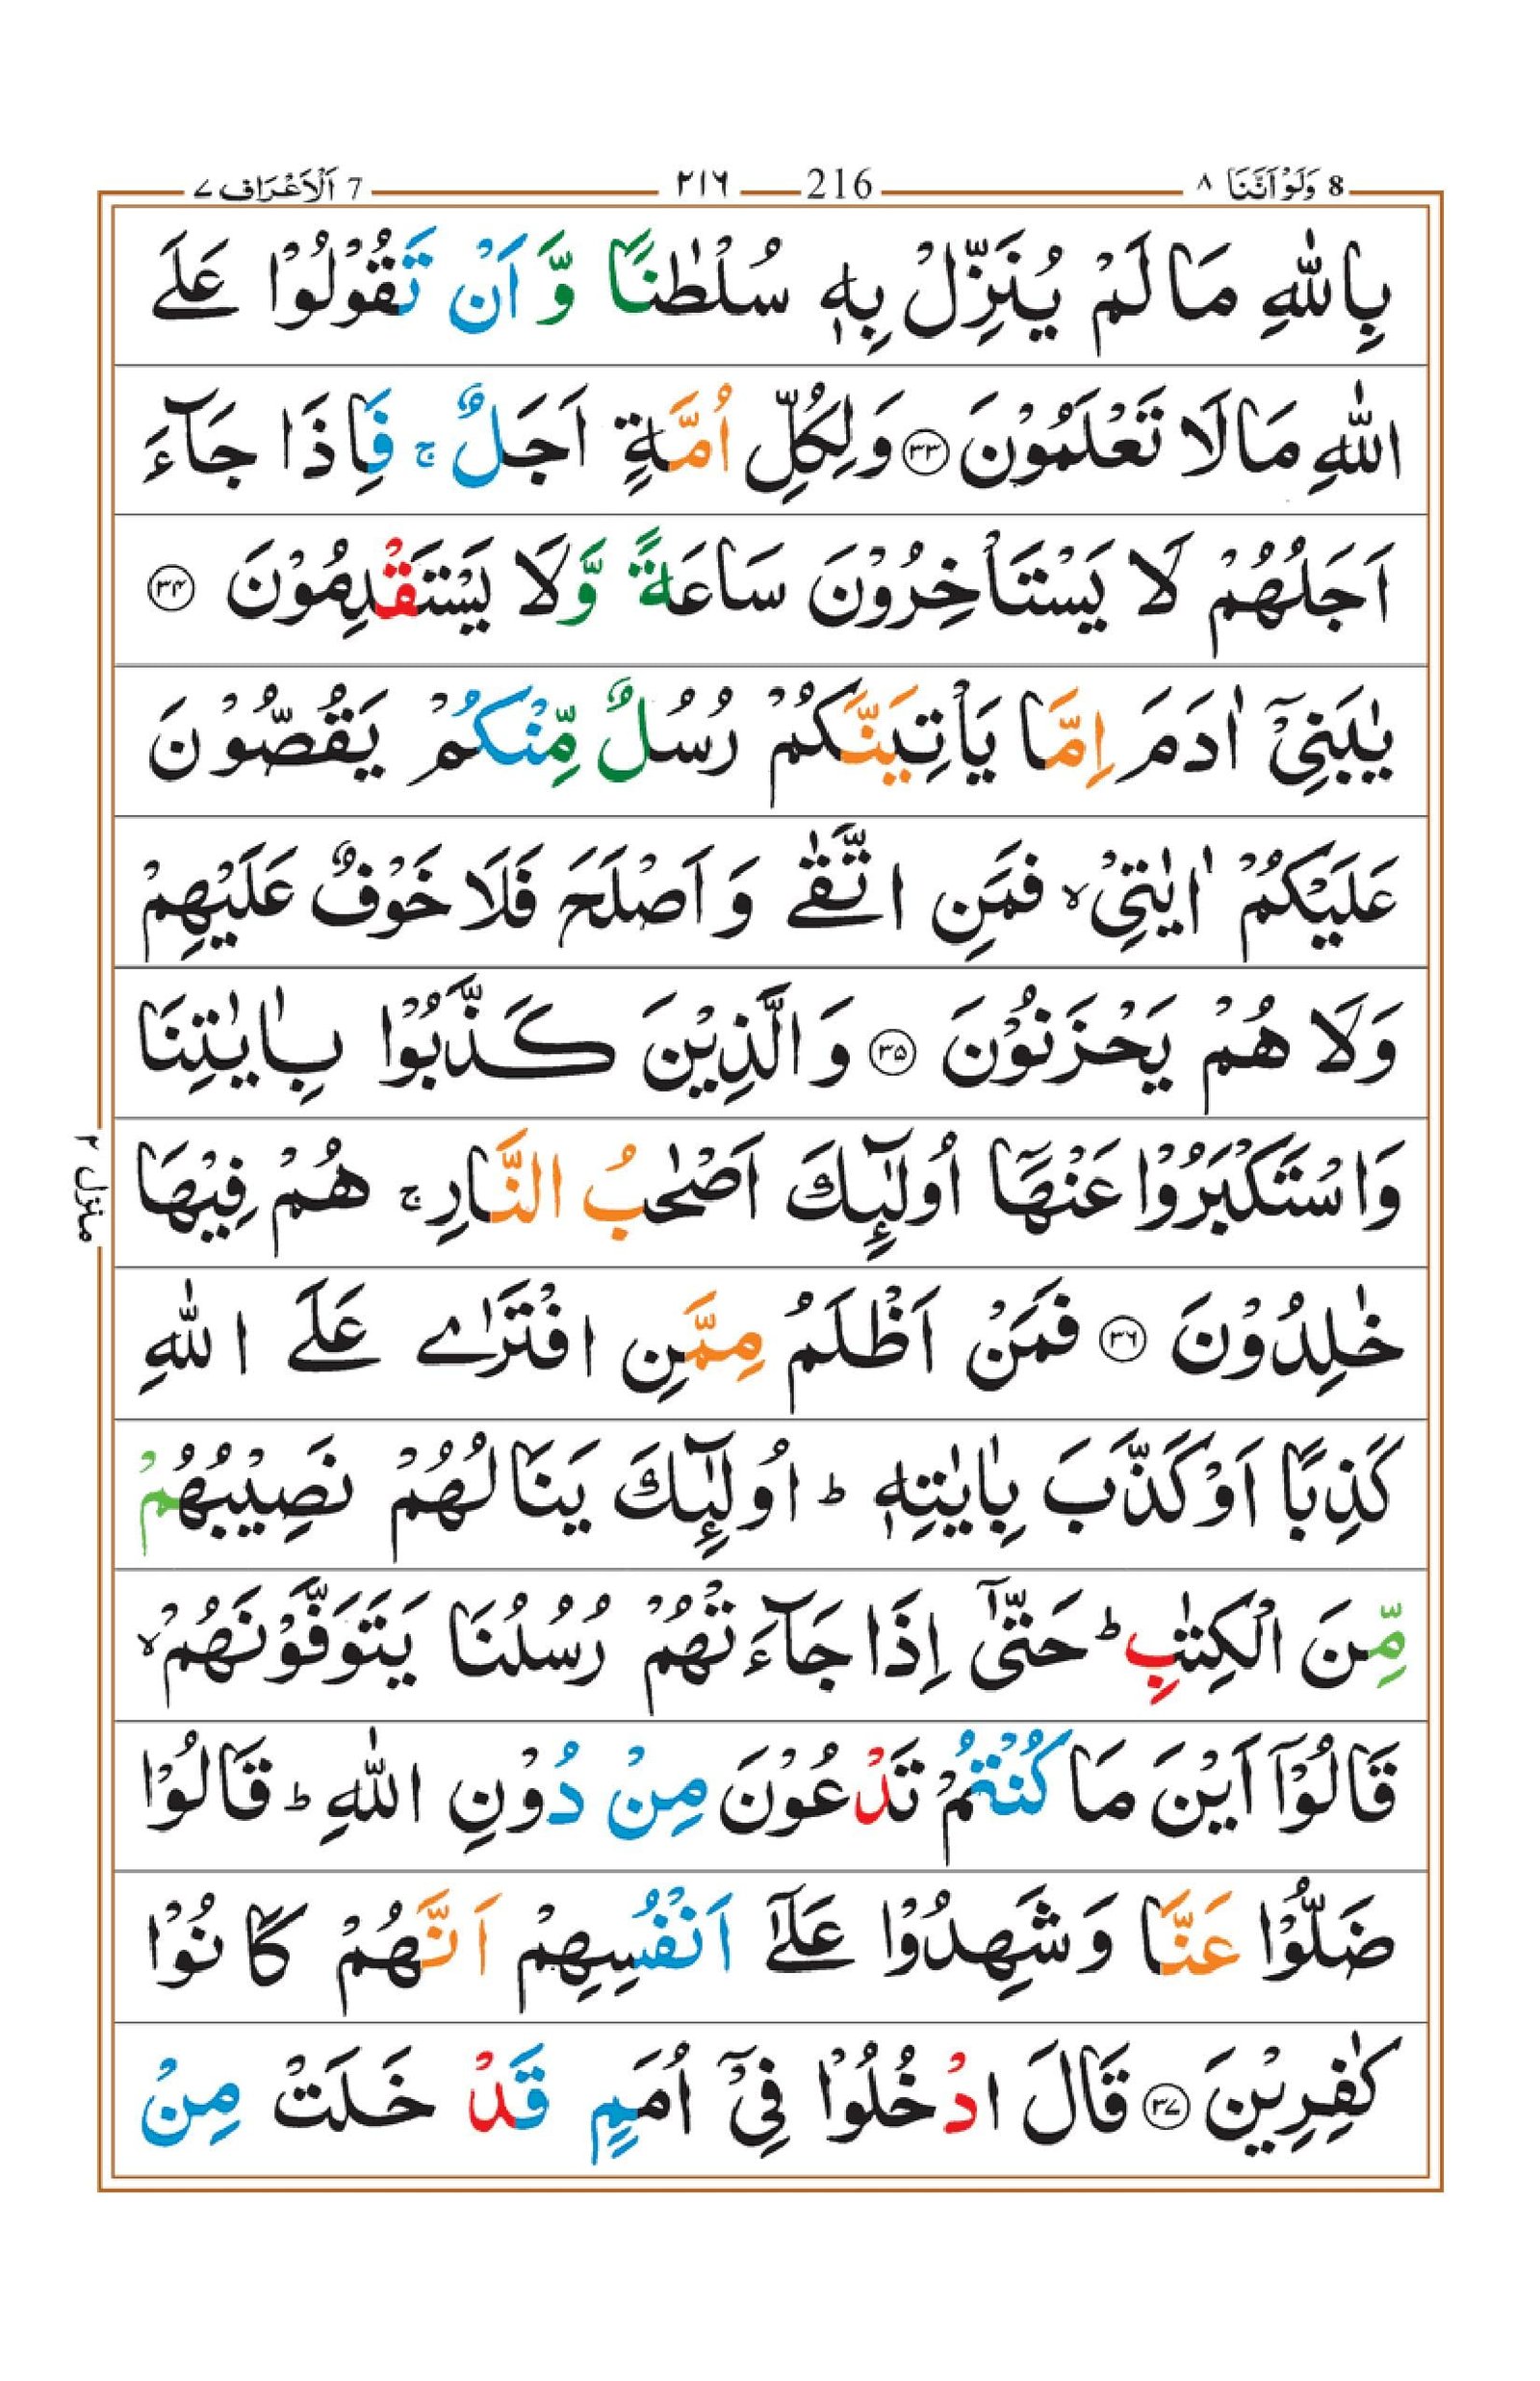 8 وَلَوْ اَنَّنَا ٨ 216 ٢١٦ 7 اَلْاَعْرَاف ٧
بِاللّٰهِ مَا لَمْ يُنَزِّلْ بِهٖ سُلْطٰنًا وَّ اَنْ تَقُوْلُوْا عَلَى
اللّٰهِ مَا لَا تَعْلَمُوْنَ ۝۳۳ وَلِكُلِّ اُمَّةٍ اَجَلٌ ۚ فَاِذَا جَآءَ
اَجَلُهُمْ لَا يَسْتَاْخِرُوْنَ سَاعَةً وَّلَا يَسْتَقْدِمُوْنَ ۝۳۴
يٰبَنِيْۤ اٰدَمَ اِمَّا يَاْتِيَنَّكُمْ رُسُلٌ مِّنْكُمْ يَقُصُّوْنَ
عَلَيْكُمْ اٰيٰتِيْ ۙ فَمَنِ اتَّقٰى وَاَصْلَحَ فَلَا خَوْفٌ عَلَيْهِمْ
وَلَا هُمْ يَحْزَنُوْنَ ۝۳۵ وَالَّذِيْنَ كَذَّبُوْا بِاٰيٰتِنَا
وَاسْتَكْبَرُوْا عَنْهَاۤ اُولٰٓئِكَ اَصْحٰبُ النَّارِ ۚ هُمْ فِيْهَا
خٰلِدُوْنَ ۝۳۶ فَمَنْ اَظْلَمُ مِمَّنِ افْتَرٰى عَلَى اللّٰهِ
كَذِبًا اَوْ كَذَّبَ بِاٰيٰتِهٖ ؕ اُولٰٓئِكَ يَنَالُهُمْ نَصِيْبُهُمْ
مِّنَ الْكِتٰبِ ؕ حَتّٰۤى اِذَا جَآءَتْهُمْ رُسُلُنَا يَتَوَفَّوْنَهُمْ ۙ
قَالُوْۤا اَيْنَ مَا كُنْتُمْ تَدْعُوْنَ مِنْ دُوْنِ اللّٰهِ ؕ قَالُوْا
ضَلُّوْا عَنَّا وَشَهِدُوْا عَلٰۤى اَنْفُسِهِمْ اَنَّهُمْ كَانُوْا
كٰفِرِيْنَ ۝۳۷ قَالَ ادْخُلُوْا فِيْۤ اُمَمٍ قَدْ خَلَتْ مِنْ
منزل ٢